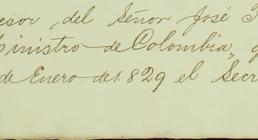 esor del Señor José
Ministro de Colombia,
de Enero de 1829 el Secr